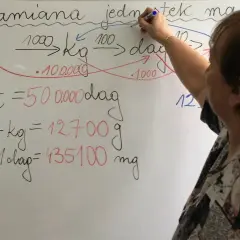 amiana jednostek ma
1000 kg 100 dag 10
·10000g ·1000
t = 500.000dag
kg = 12700 g
dag = 435100 mg